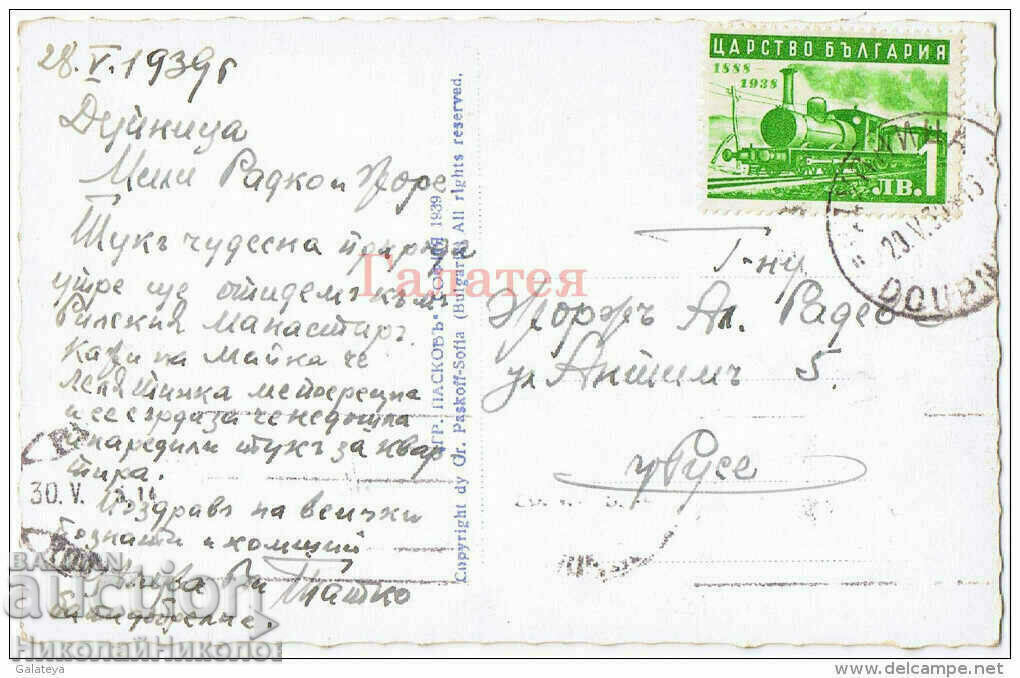 28.V.1939г
Дупница
Мили Радко и Жоре
Тукъ чудесна природа
утре ще отидемъ къмъ
Рилския манастиръ.
Кажи на майка че
ме посрещна
и се сърди за че не дошла
и наредили тукъ за квар
тира.
Поздравъ на всички
познати и комшии
Ви Татко
30.V.
ГР. ПАСКОВЪ - СОФИЯ 1939
Copyright dy Gr. Paskoff-Sofia (Bulgaria) All rights reserved.
ЦАРСТВО БЪЛГАРИЯ
1888 -
1938
1 ЛВ.
29.V.39
DOUPN
Г-нъ
Жоржъ Ал. Радевъ
ул Антимъ 5.
гр Русе
Галатея
BALKAN
auction
НиколайНиколов
Galateya
delcampe.net